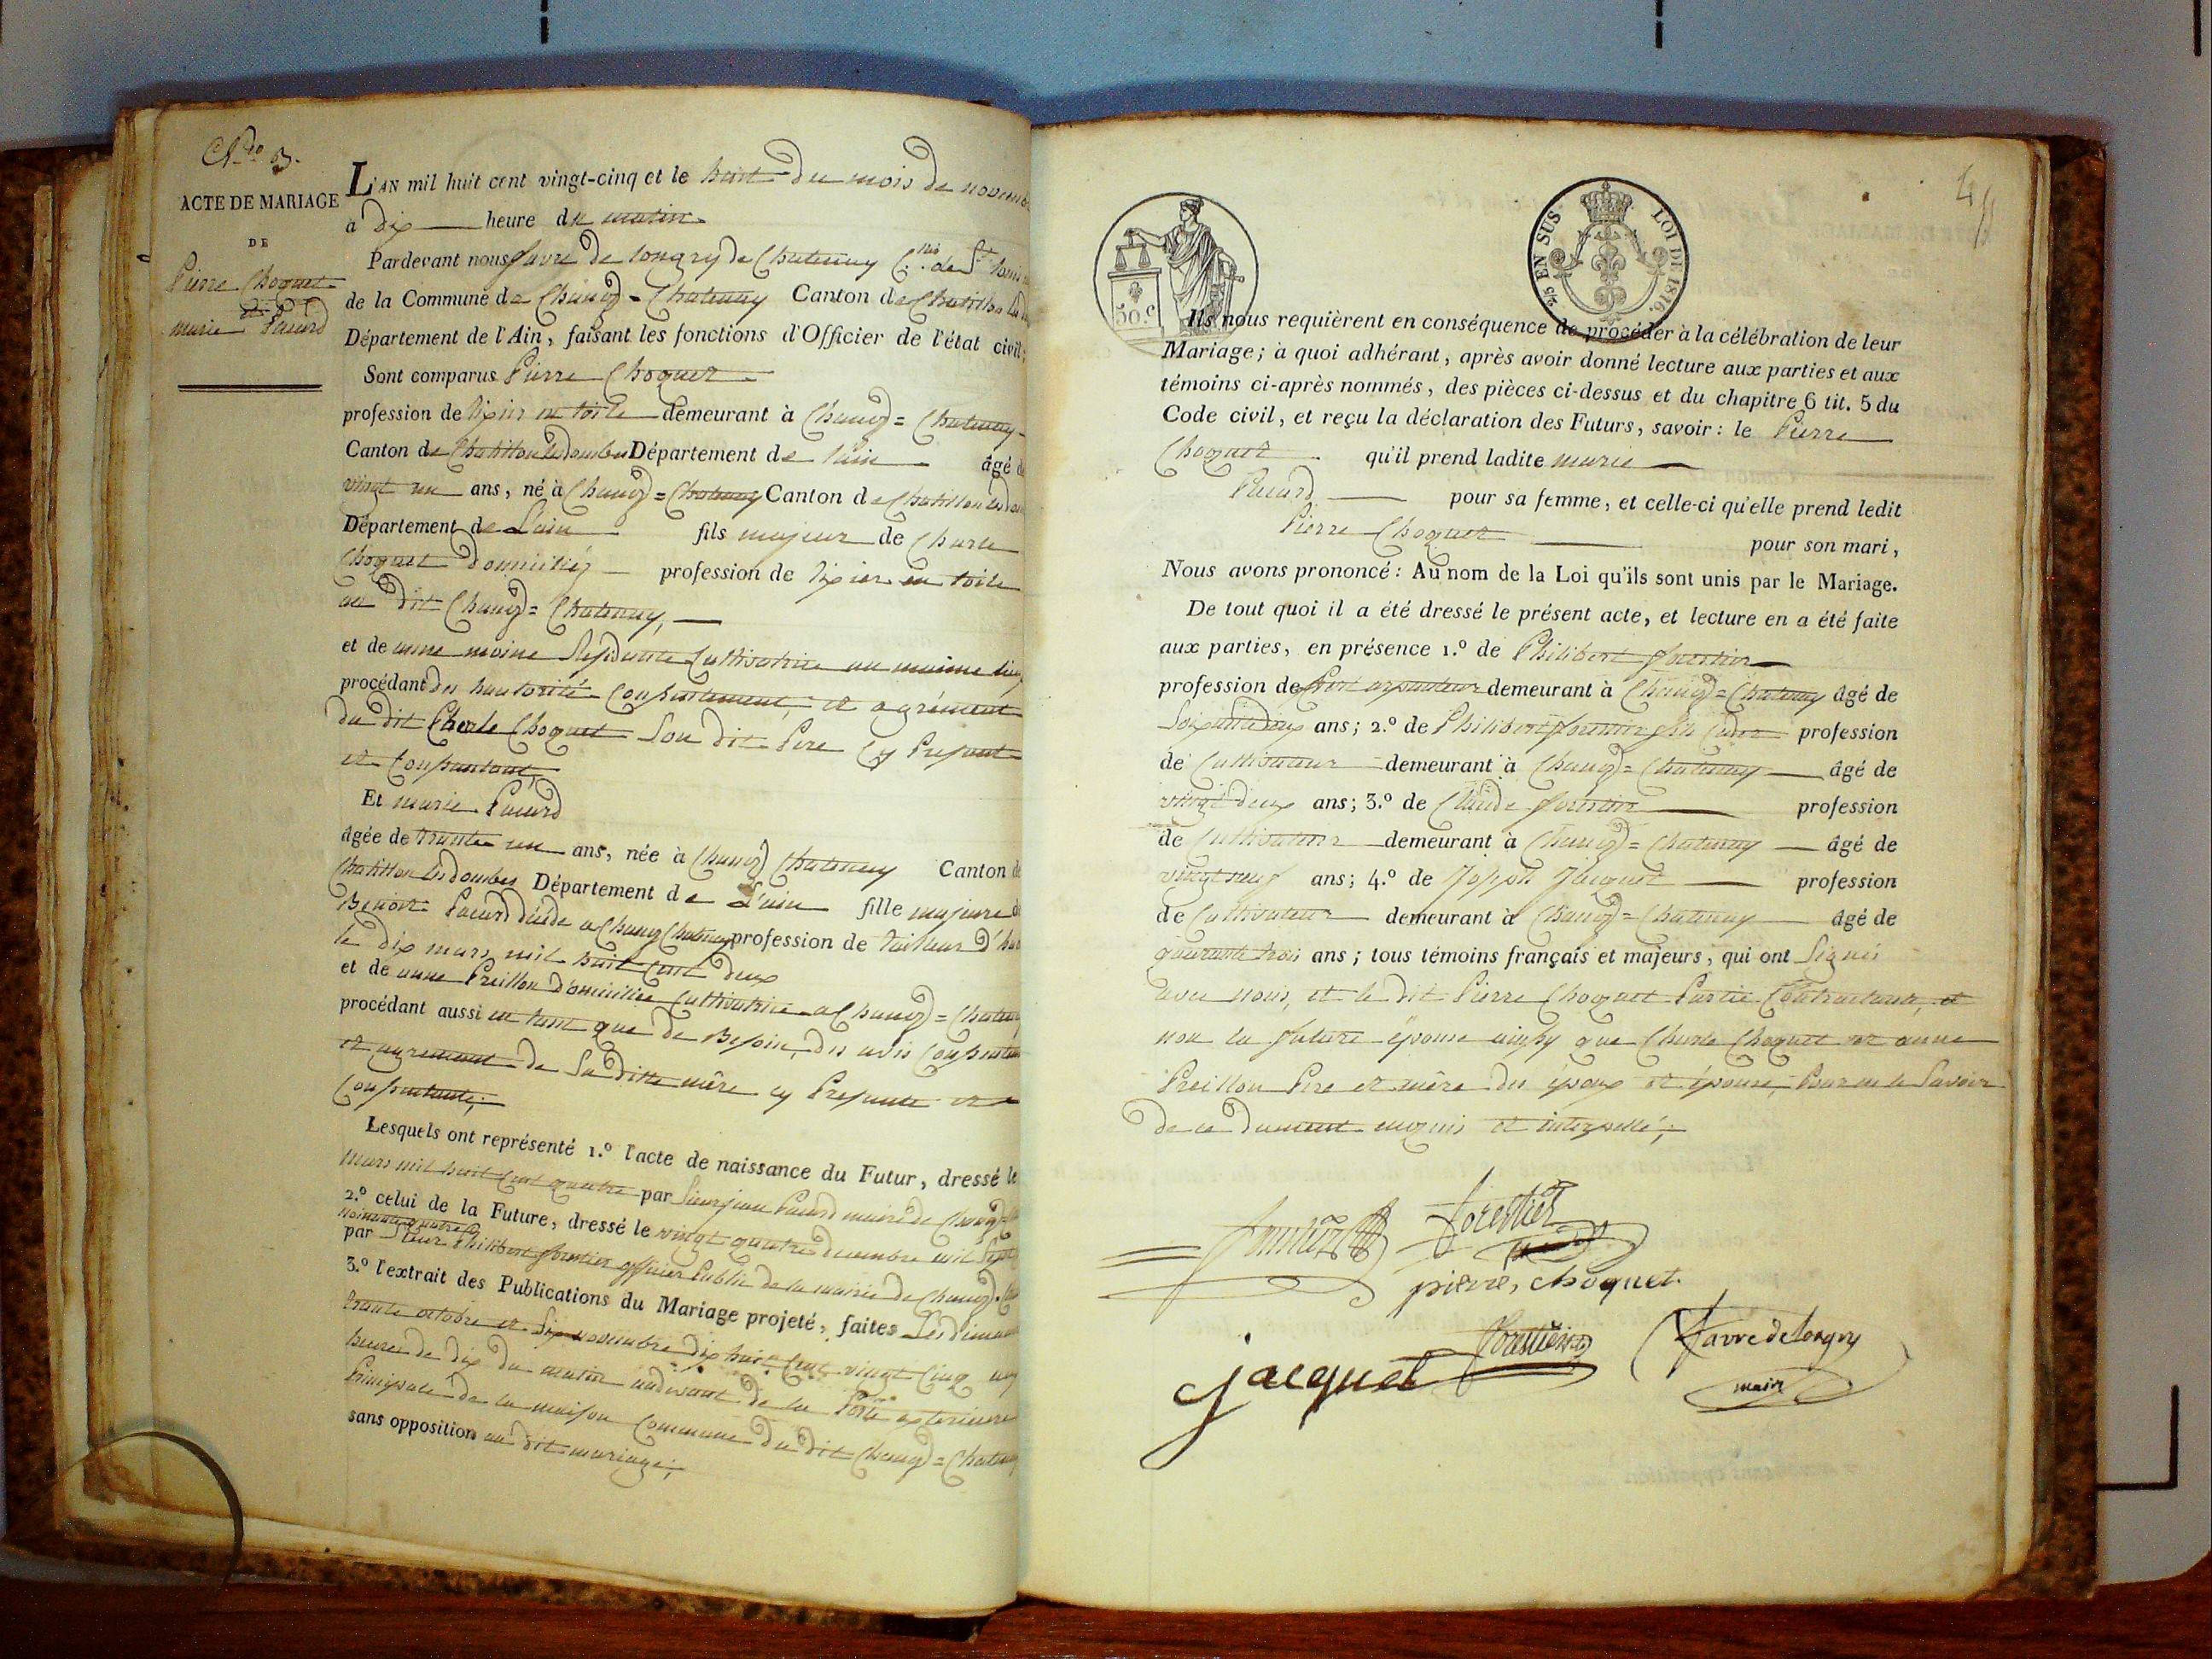 N.ro 3.
ACTE DE MARIAGE
DE
Pierre Choquet
et
marie Pacard
L'AN mil huit cent vingt-cinq et le huit du mois de novembre
à dix heure du matin
Pardevant nous favre de longry de Chatenay
de la Commune de Chaney = Chatenay Canton de Chatillon
Département de l'Ain, faisant les fonctions d'Officier de l'état civil;
Sont comparus Pierre Choquet
profession de tixier en toile demeurant à Chaney = Chatenay
Canton de Chatillon les dombes Département de l'ain âgé de
vingt un ans, né à Chaney = Chatenay Canton de Chatillon les
Département de L'ain fils majeur de Charle
Choquet domicilié profession de tixier en toile
au dit Chaney = Chatenay,
et de anne moine Residente Cultivatrice au maime lieu
procédant des hautorité Consentement, et agrément
du dit Charle Choquet Son dit Pere Cy Present
et Consentant,
Et marie Pacard
âgée de trante un ans, née à Chaney Chatenay Canton de
Chatillon les dombes Département de L'ain fille majeure de
Benoit Pacard décédé a Chaney Chatenay profession de tailleur d'
le dix mars mil huit cent deux
et de anne Preillon domiciliée Cultivatrice a Chaney = Chatenay
procédant aussi en tant que de Besoin, des avis
et agrement de Sa ditte mère cy Presente et
Consentante;
Lesquels ont représenté 1.º l'acte de naissance du Futur, dressé le
mars mil huit Cent quatre par Sieur jean Pacard maire de Chaney
2.º celui de la Future, dressé le vingt quatre decembre mil Sept
nonante quatre
par Sieur Philibert forestier officier Public de la mairie de Chaney
3.º l'extrait des Publications du Mariage projeté, faites Les
trante octobre et Six novembre dix huit Cent vingt Cinq
heures de dix du matin audevant de la Porte exterieure
Principale de la maison Commune du dit Chaney = Chatenay
sans opposition au dit mariage;
50.c
25 EN SUS LOI DE 1816.
Ils nous requièrent en conséquence de procéder à la célébration de leur
Mariage; à quoi adhérant, après avoir donné lecture aux parties et aux
témoins ci-après nommés, des pièces ci-dessus et du chapitre 6 tit. 5 du
Code civil, et reçu la déclaration des Futurs, savoir: le Pierre
Choquet qu'il prend ladite marie
Pacard pour sa femme, et celle-ci qu'elle prend ledit
Pierre Choquet pour son mari,
Nous avons prononcé: Au nom de la Loi qu'ils sont unis par le Mariage.
De tout quoi il a été dressé le présent acte, et lecture en a été faite
aux parties, en présence 1.º de Philibert forestier
profession de arpenteur demeurant à Chaney = Chatenay âgé de
Soixante deux ans; 2.º de Philibert forestier fils profession
de Cultivateur demeurant à Chaney = Chatenay âgé de
vingt deux ans; 3.º de Claude forestier profession
de Cultivateur demeurant à Chaney = Chatenay âgé de
vingt neuf ans; 4.º de Joseph Jacquet profession
de Cultivateur demeurant à Chaney = Chatenay âgé de
quarante trois ans; tous témoins français et majeurs, qui ont Signés
avec nous, et le dit Pierre Choquet Partie Contractante, et
non la future épouse ainsy que Charle Choquet et anne
Preillon Pere et mère des époux et épouse, Pour ne le Savoir
de ce dument enquis et interpellé;
forestier
forestier
pierre, choquet.
jacquet
forestier
favre de longry
maire